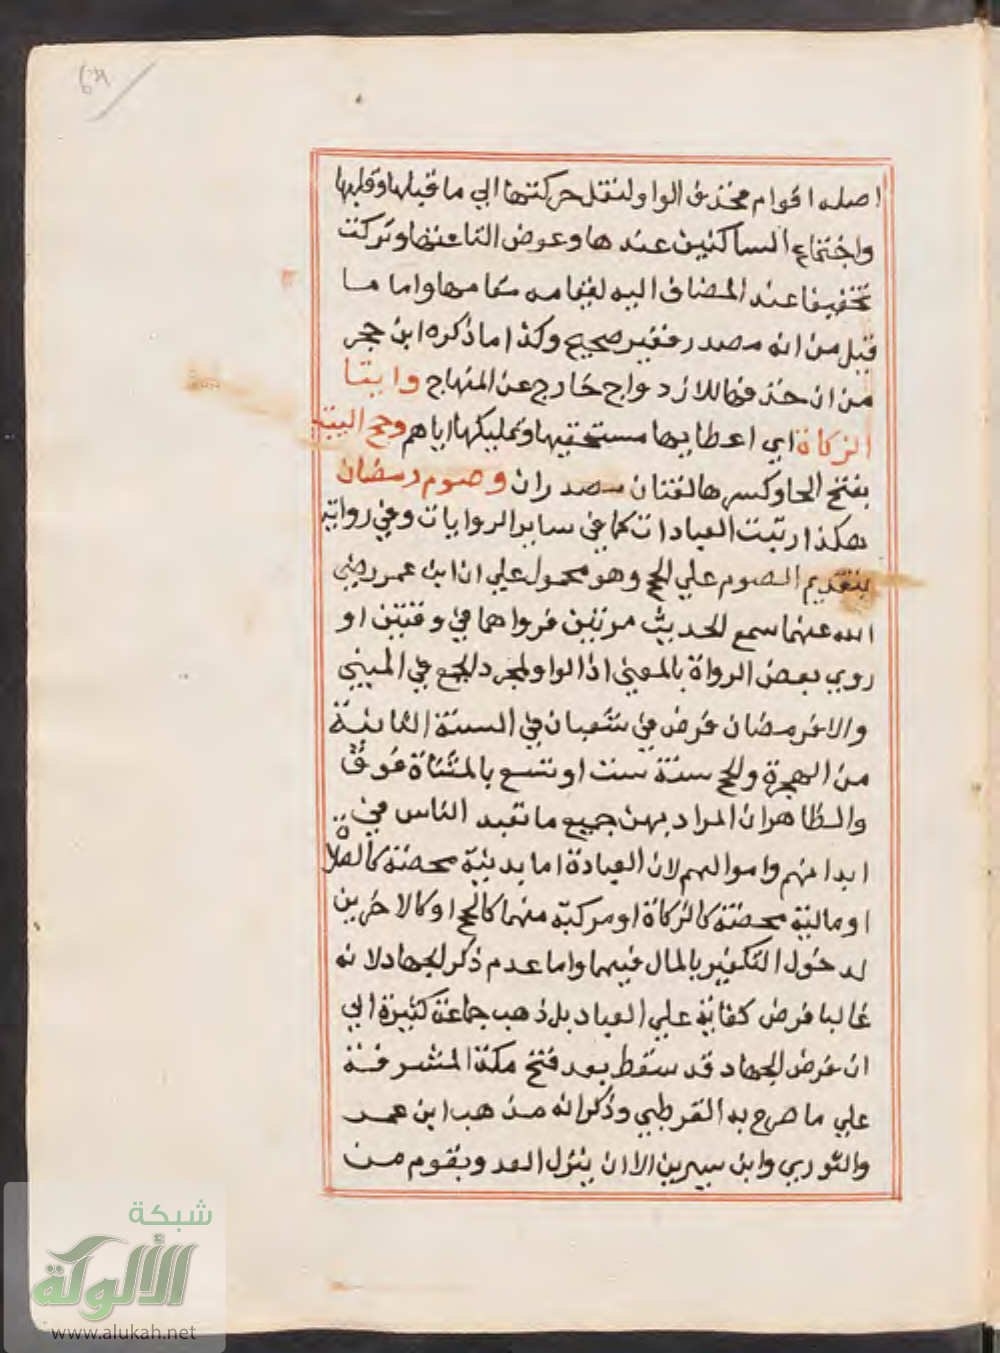 اصله اقوام فحذف الواو لنقل حركتها الي ما قبلها وقلبها
واجتماع الساكنين عندها وعوض التا عنها وتركت
تخفيفا عند المضاف اليه لقيامه مقامها واما ما
قيل من انه مصدر فغير صحيح وكذا ما ذكره ابن حجر
من ان حذفها للازدواج خارج عن المنهاج وايتا
الزكاة اي اعطايها مستحقيها وتمليكها اياهم وحج البيت
بفتح الحا وكسرها لغتان مصدران وصوم رمضان
هكذا رتبت العبادات كما في ساير الروايات وفي رواية
بتقديم الصوم علي الحج وهو محمول علي ان ابن عمر رضي
الله عنهما سمع الحديث مرتين فرواهما في وقتين او
روي بعض الرواة بالمعني اذ الواو لمجرد الجمع في المبني
والا فرمضان فرض في شعبان في السنة الثانية
من الهجرة والحج سنة ست او تسع بالمثناة فوق
والظاهر ان المراد بهن جميع ما تعبد الناس في
ابدانهم واموالهم لان العبادة اما بدنية محضة كالصلاة
او مالية محضة كالزكاة او مركبة منهما كالحج او كالاخرين
لدخول التكفير بالمال فيهما واما عدم ذكر الجهاد لانه
غالبا فرض كفاية علي العباد بل ذهب جماعة كثيرة الي
ان فرض الجهاد قد سقط بعد فتح مكة المشرفة
علي ما صرح به القرطبي وذكر انه مذهب ابن عمر
والثوري وابن سيرين الا ان ينزل العدو بقوم من
شبكة
الألوكة
www.alukah.net